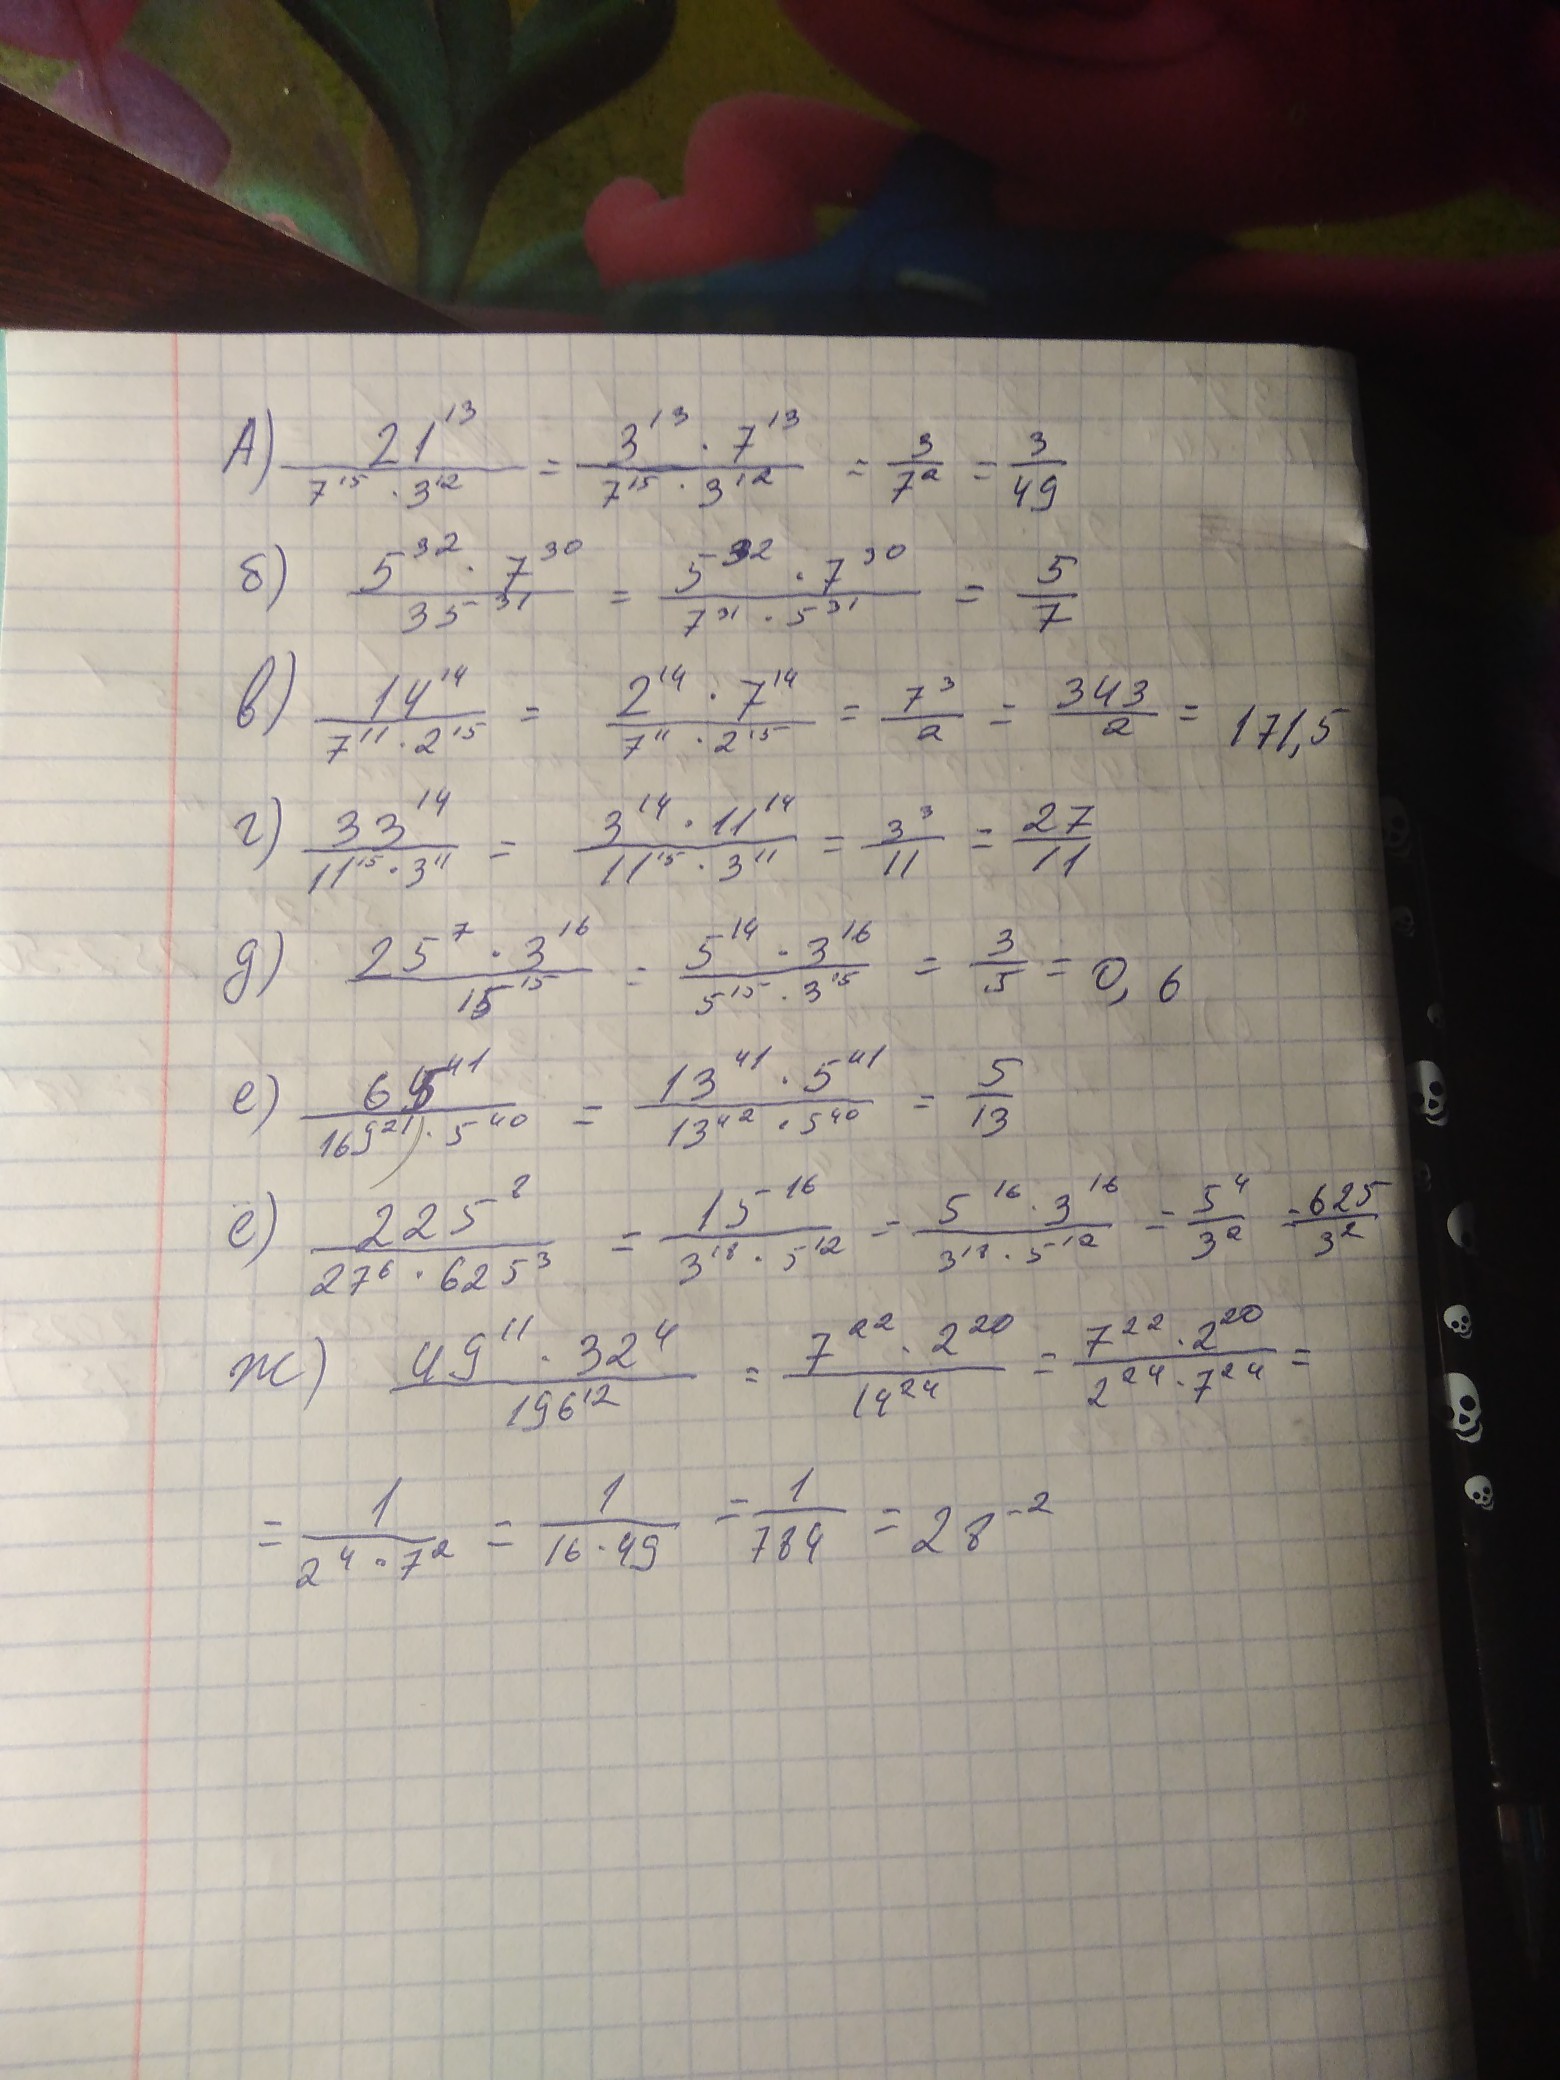 А) 21^13 / (7^15 · 3^12) = (3^13 · 7^13) / (7^15 · 3^12) = 3 / 7^2 = 3 / 49
б) (5^32 · 7^30) / 35^31 = (5^32 · 7^30) / (7^31 · 5^31) = 5 / 7
в) 14^14 / (7^11 · 2^15) = (2^14 · 7^14) / (7^11 · 2^15) = 7^3 / 2 = 343 / 2 = 171,5
г) 33^14 / (11^15 · 3^11) = (3^14 · 11^14) / (11^15 · 3^11) = 3^3 / 11 = 27 / 11
д) (25^7 · 3^16) / 15^15 = (5^14 · 3^16) / (5^15 · 3^15) = 3 / 5 = 0,6
е) 65^41 / (169^21 · 5^40) = (13^41 · 5^41) / (13^42 · 5^40) = 5 / 13
е) 225^8 / (27^6 · 625^3) = 15^16 / (3^18 · 5^12) = (5^16 · 3^16) / (3^18 · 5^12) = 5^4 / 3^2 = 625 / 3^2
ж) (49^11 · 32^4) / 196^12 = (7^22 · 2^20) / 14^24 = (7^22 · 2^20) / (2^24 · 7^24) =
= 1 / (2^4 · 7^2) = 1 / (16 · 49) = 1 / 784 = 28^-2